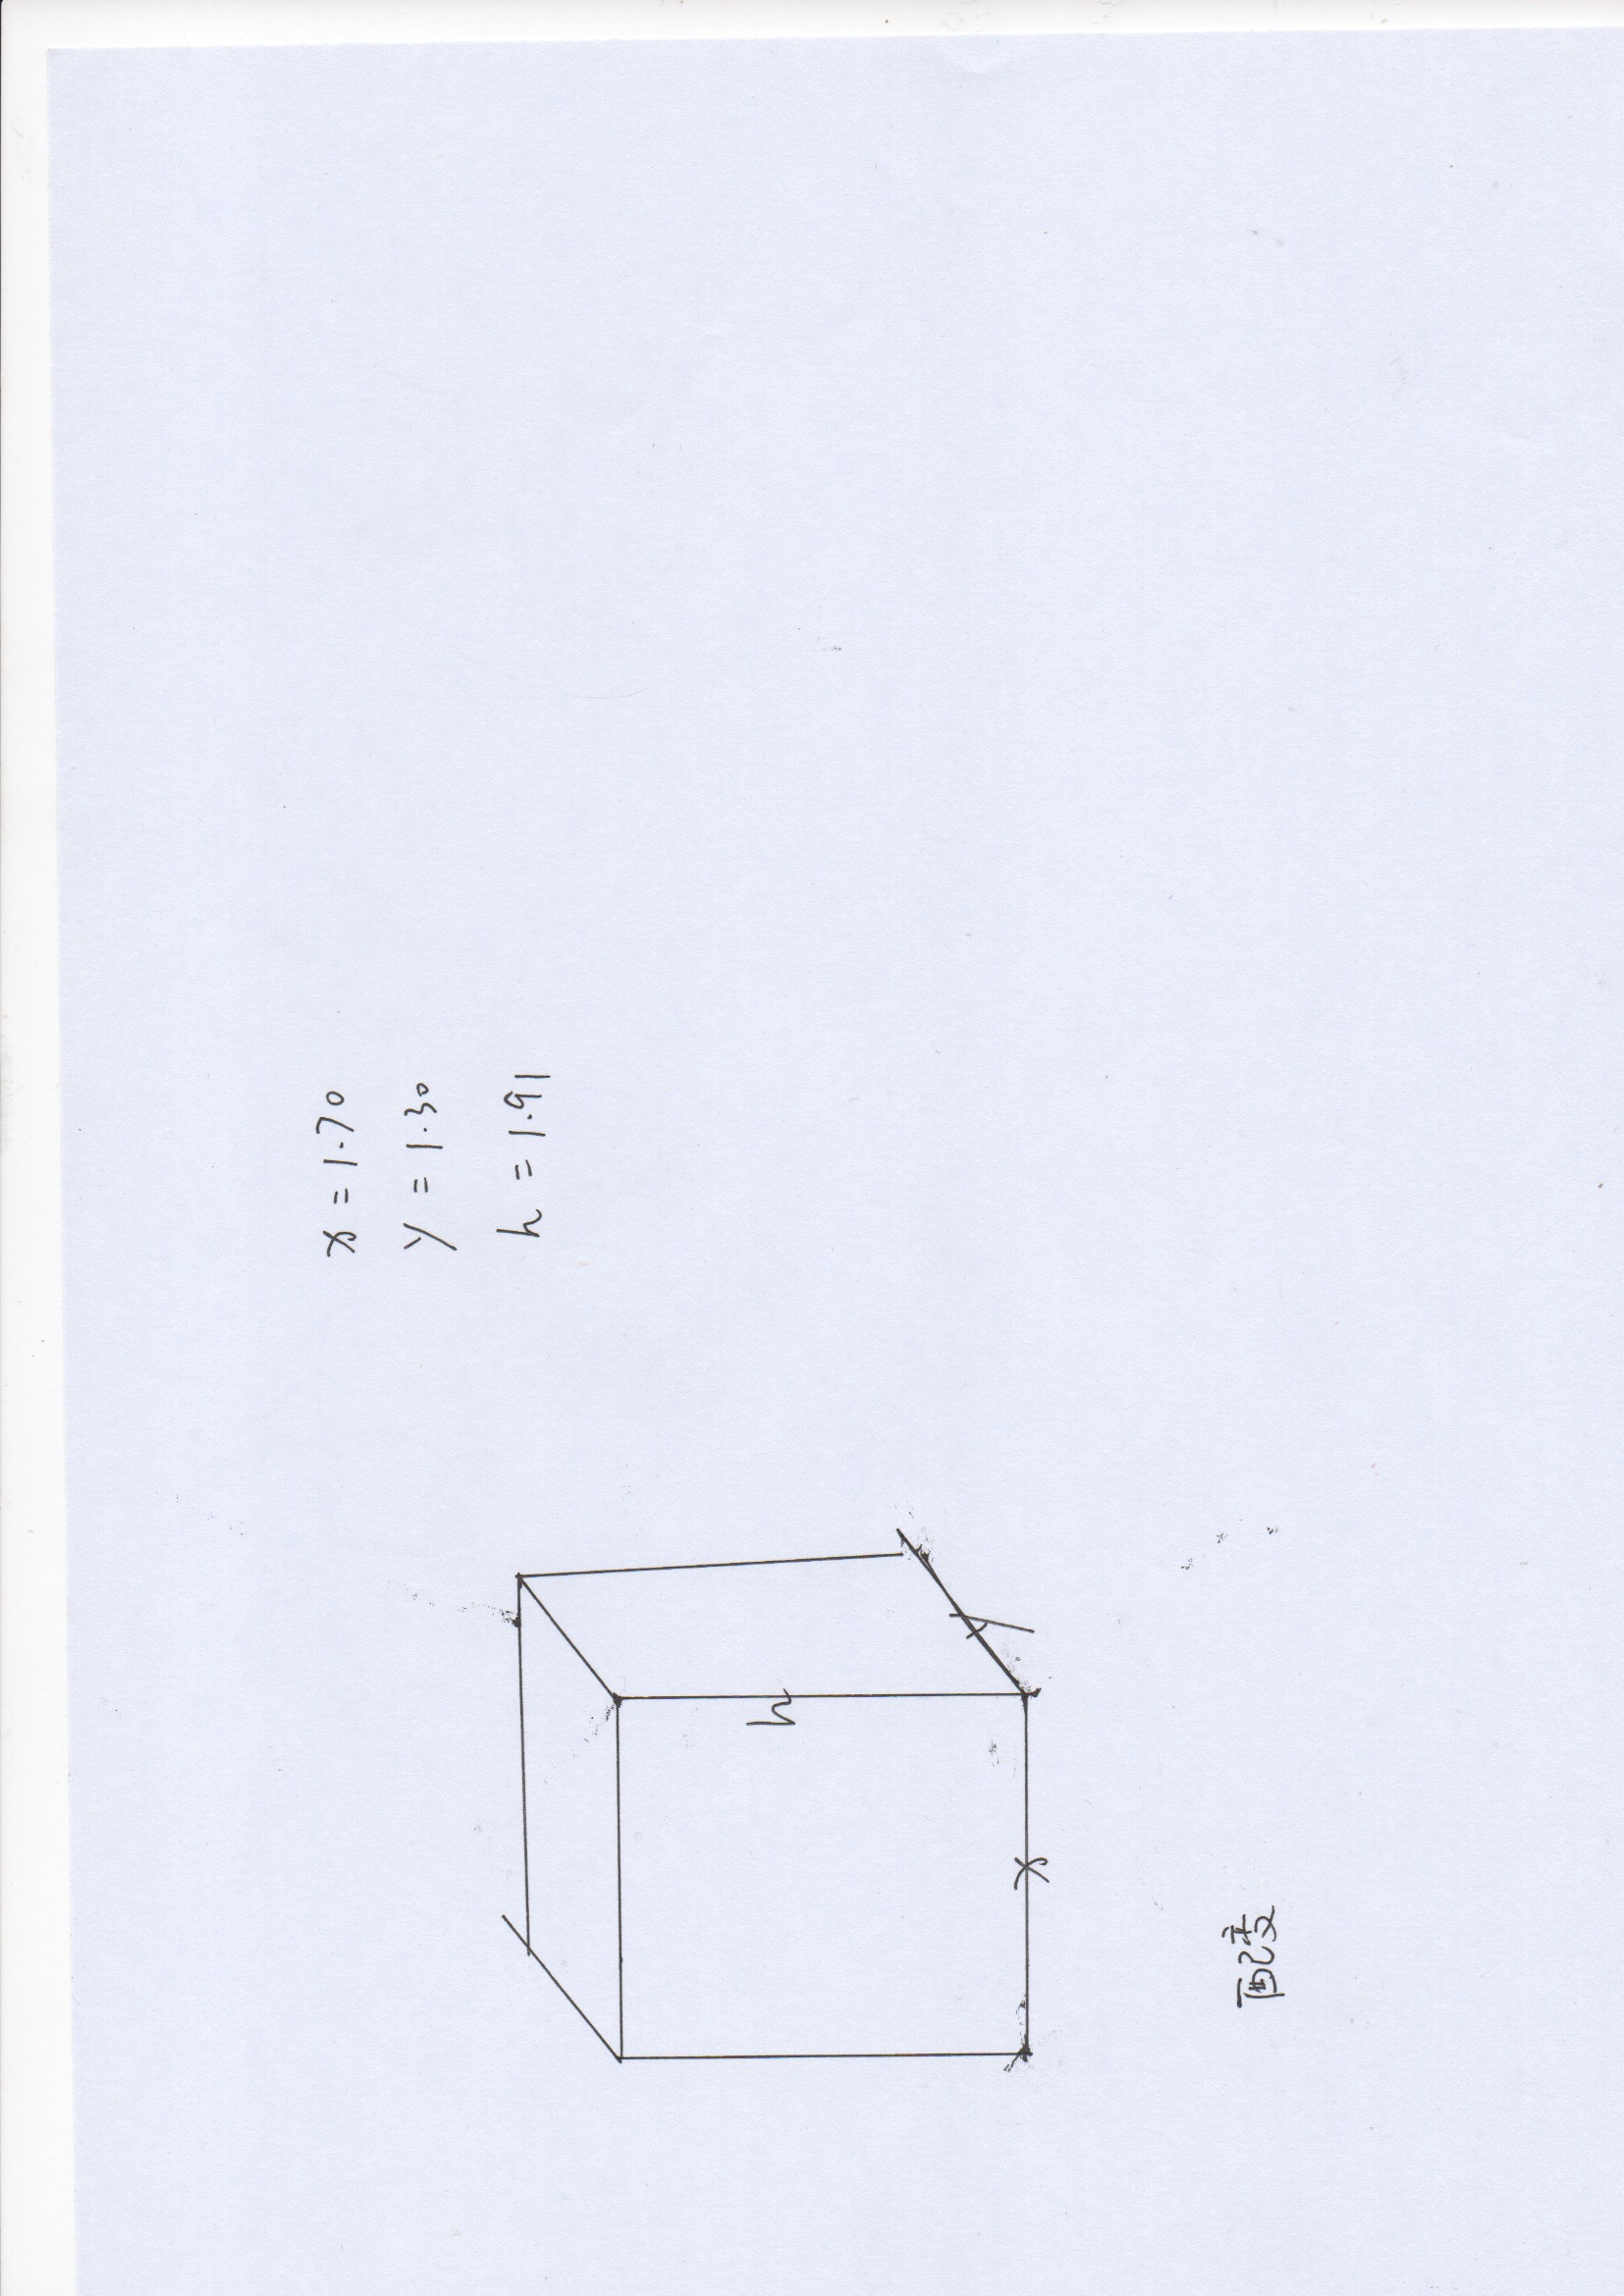 x = 1.70
y = 1.30
h = 1.91
h
y
x
配变